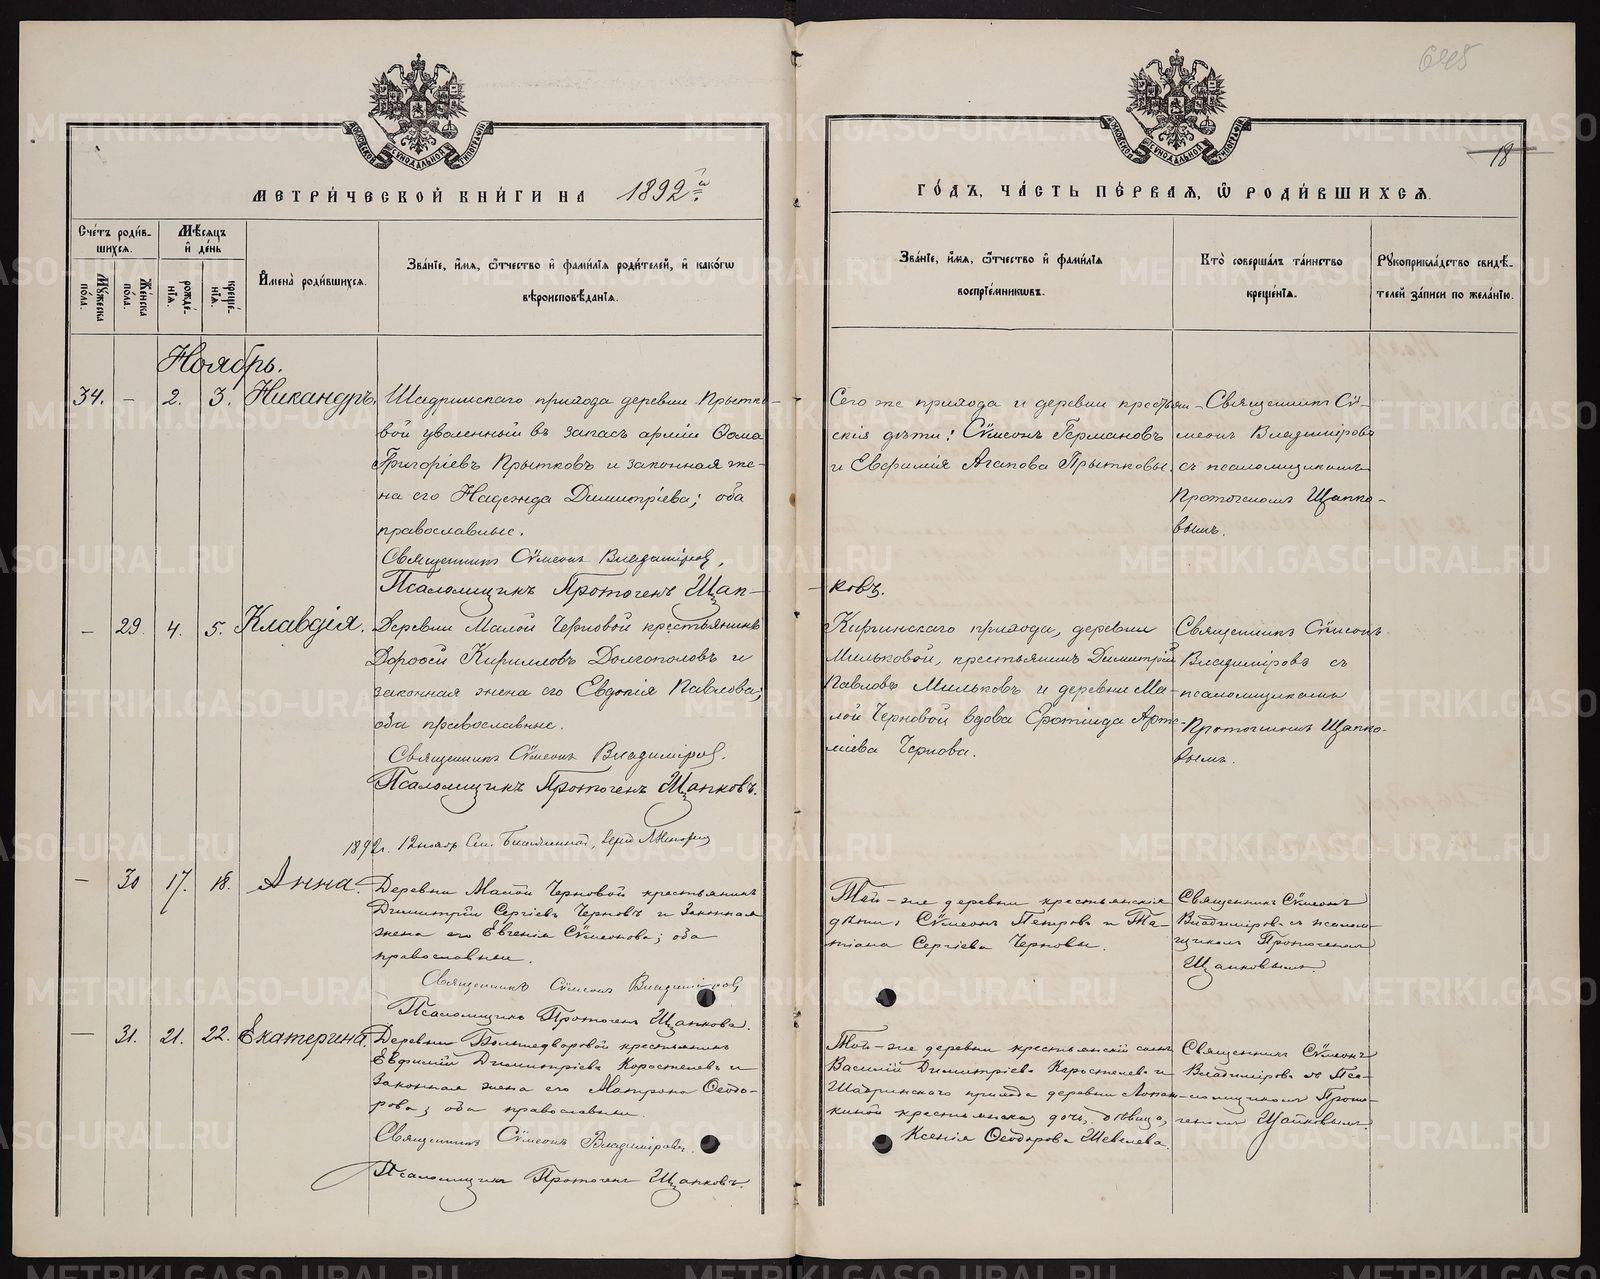 645
18
МЕТРИ́ЧЕСКОЙ КНИ́ГИ НА 1892й
ГО́ДЪ, ЧА́СТЬ ПЕ́РВАЯ, Ѡ РОДИ́ВШИХСЯ.
Сче́тъ роди́в-
шихся.
Мꙋ́жеска по́ла.
Же́нска по́ла.
Мѣ́сяцъ и де́нь
рожде́-
нїѧ.
креще́-
нїѧ.
И҆мена̀ роди́вшихся.
Зва́нїе, и҆́мѧ, ѻ҆́тчество и҆ фами́лїѧ роди́телей, и҆ како́гѡ
вѣроисповѣ́данїѧ.
Зва́нїе, и҆́мѧ, ѻ҆́тчество и҆ фами́лїѧ
воспрїе́мникѡвъ.
Кто̀ соверша́лъ та́инство
креще́нїѧ.
Рꙋкоприкла́дство свидѣ́-
телей за́писи по жела́нїю.
Ноябрь.
34. – 2. 3. Никандръ.
Шадринскаго прихода деревни Прытко-
вой уволенный въ запасъ арміи Ѳома
Григоріевъ Прытковъ и законная же-
на его Надежда Димитріева; оба
православные.
Священникъ Сѵмеонъ Владиміровъ.
Псаломщикъ Протогенъ Щап-
ковъ.
Сего же прихода и деревни крестьян-
скія дѣти: Сѵмеонъ Германовъ
и Евфимія Агапова Прытковы.
Священникъ Сѵ-
меонъ Владиміровъ
съ псаломщикомъ
Протогеномъ Щапко-
вымъ.
– 29. 4. 5. Клавдія.
Деревни Малой Черновой крестьянинъ
Дороѳей Кирилловъ Долгополовъ и
законная жена его Евдокія Павлова;
оба православные.
Священникъ Сѵмеонъ Владиміровъ.
Псаломщикъ Протогенъ Щапковъ.
Киргинскаго прихода, деревни
Мильковой, крестьянинъ Димитрій
Павловъ Мильковъ и деревни Ма-
лой Черновой вдова Еротіида Арте-
міева Чернова.
Священникъ Сѵмеонъ
Владиміровъ съ
псаломщикомъ
Протогеномъ Щапко-
вымъ.
1892г. 12 ноябр
– 30 17. 18. Анна.
Деревни Малой Черновой крестьянинъ
Димитрій Сергіевъ Черновъ и законная
жена его Евгенія Сѵмеонова; оба
православные.
Священникъ Сѵмеонъ Владиміровъ
Псаломщикъ Протогенъ Щапковъ.
Той-же деревни крестьянскія
дѣти: Сѵмеонъ Петровъ и Та-
тіана Сергіева Черновы.
Священникъ Сѵмеонъ
Владиміровъ съ псалом-
щикомъ Протогеномъ
Щапковымъ.
– 31. 21. 22. Екатерина.
Деревни Большедворовой крестьянинъ
Евфимій Димитріевъ Коростелевъ и
законная жена его Матрона Ѳеодо-
рова; оба православные.
Священникъ Сѵмеонъ Владиміровъ.
Псаломщикъ Протогенъ Щапковъ.
Той-же деревни крестьянскій сынъ
Василій Димитріевъ Коростелевъ и
Шадринскаго прихода деревни
крестьянская дочь, дѣвица,
Ксенія Ѳеодорова Шевелева.
Священникъ Сѵмеонъ
Владиміровъ съ Пса-
ломщикомъ Прото-
геномъ Щапковымъ.
METRIKI.GASO-URAL.RU